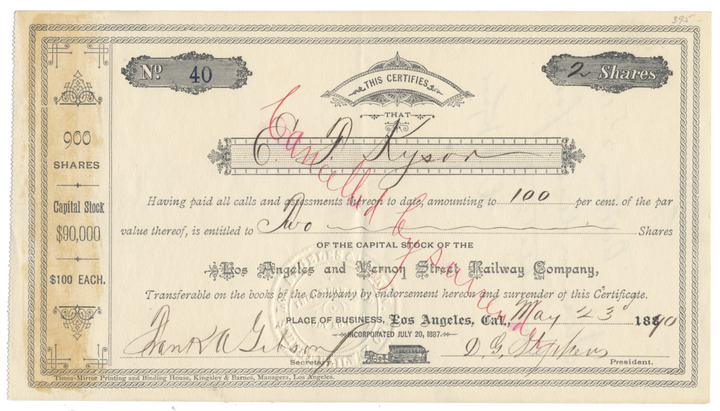 395-
No. 40
THIS CERTIFIES
THAT
2 Shares
E. F. Kysor
900
SHARES
Capital Stock
$90,000
$100 EACH.
Having paid all calls and assessments thereon to date, amounting to 100 per cent. of the par
value thereof, is entitled to Two Shares
OF THE CAPITAL STOCK OF THE
Los Angeles and Vernon Street Railway Company,
Transferable on the books of the Company by endorsement hereon and surrender of this Certificate.
PLACE OF BUSINESS, Los Angeles, Cal., May 23d 1890
INCORPORATED JULY 20, 1887.
Frank A Gibson
Secretary.
D. G. Stephens
President.
Cancelled by surrender
Times-Mirror Printing and Binding House, Kingsley & Barnes, Managers, Los Angeles.